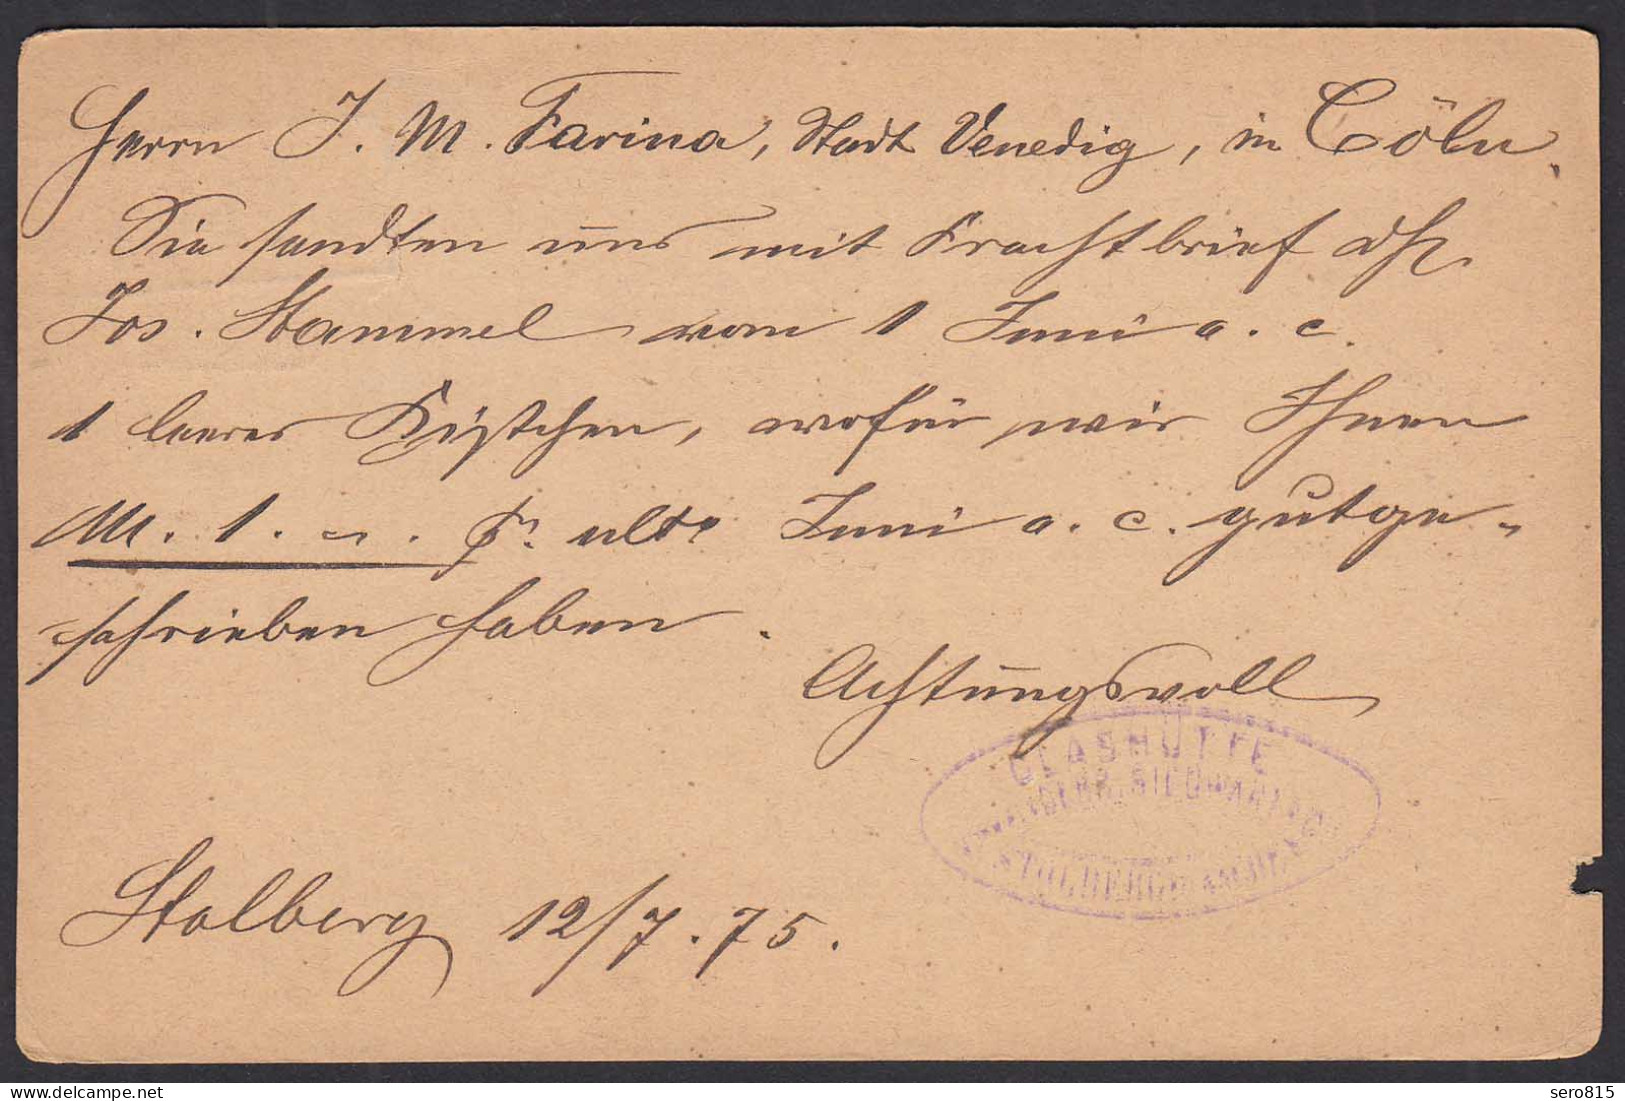 Herrn J. M. Farina, Stadt Venedig, in Cöln.
Sie sandten uns mit Frachtbrief
Jos. Stammel vom 1 Juni a. c.
1 leeres Kistchen, wofür wir Ihnen
M. 1. –. pr. ulto Juni a. c. gutge-
schrieben haben.
Achtungsvoll
GLASHÜTTE
SIEGWART
STOLBERG
Stolberg 12/7.75.
sero815